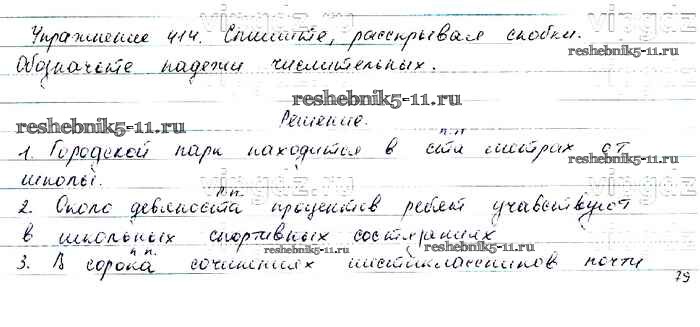 Упражнение 414. Спишите, раскрывая скобки.
Обозначьте падежи числительных.
Решение.
п.п.
1. Городской парк находится в ста метрах от
школы.
п.п.
2. Около девяноста процентов ребят учавствуют
в школьных спортивных состязаниях
п.п.
3. В сорока сочинениях шестиклассников почти
79
reshebnik5-11.ru
reshebnik5-11.ru
reshebnik5-11.ru
reshebnik5-11.ru
reshebnik5-11.ru
reshebnik5-11.ru
vipgdz.ru